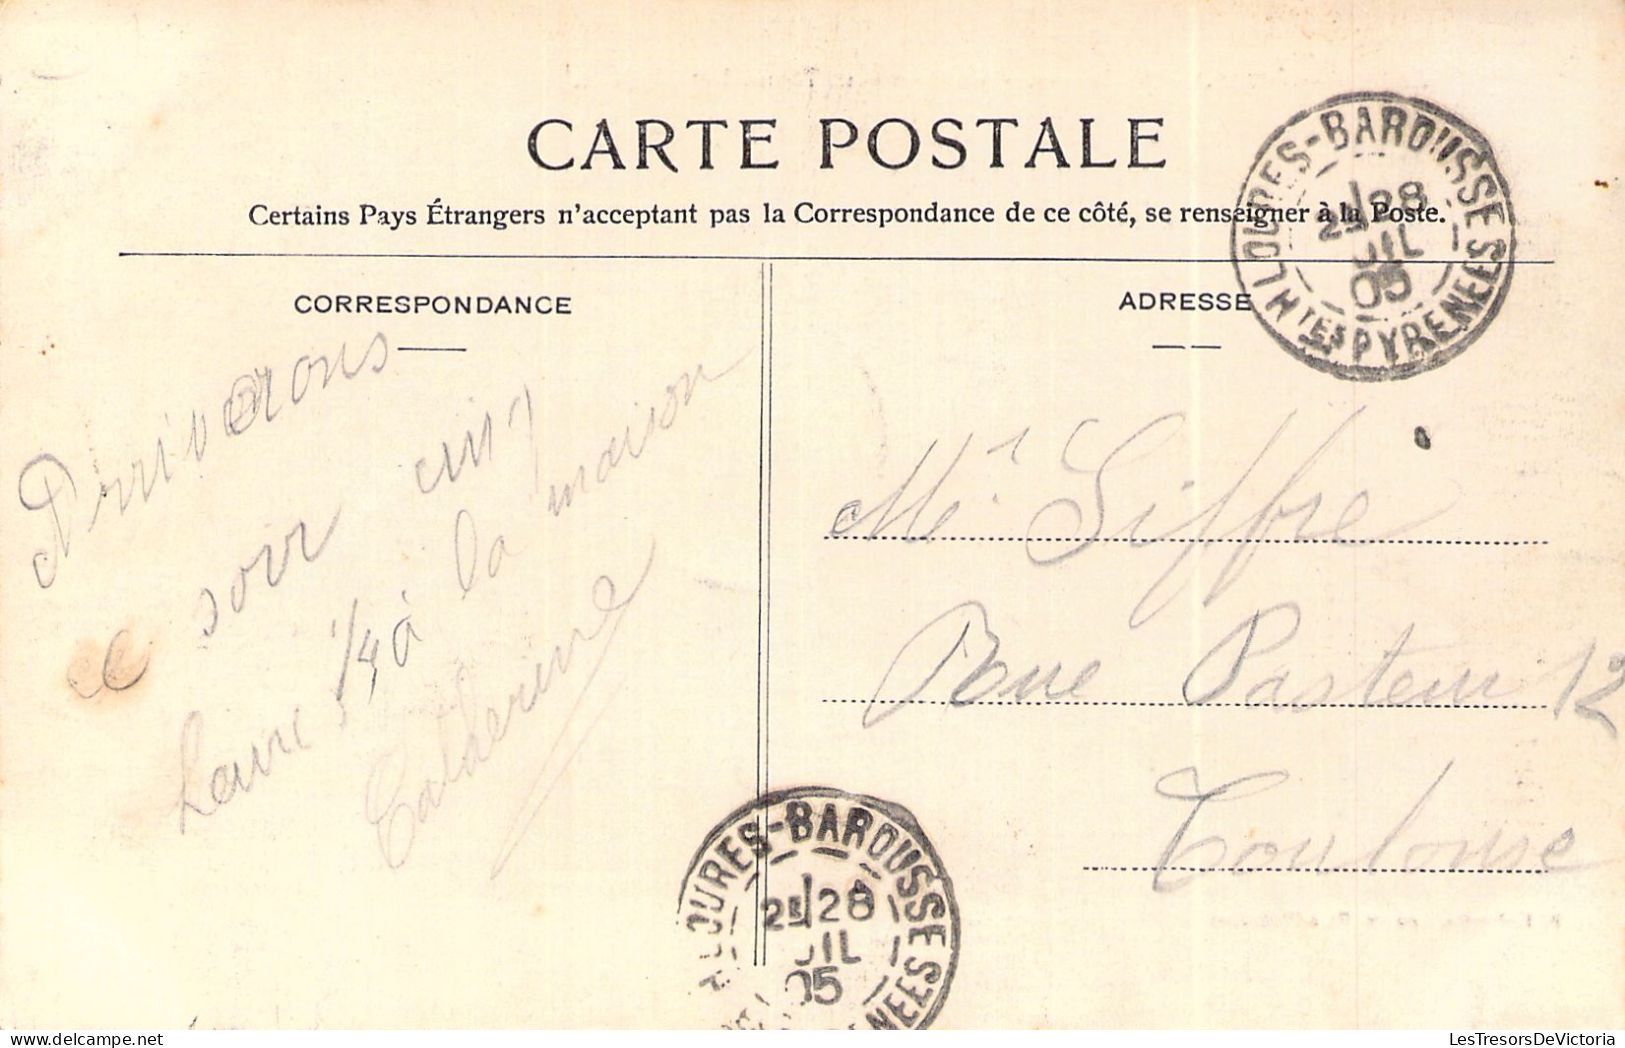 CARTE POSTALE
Certains Pays Étrangers n'acceptant pas la Correspondance de ce côté, se renseigner à la Poste.
LOURES-BAROUSSE
28
JUIL
05
HTES PYRENEES
CORRESPONDANCE
Arriverons
ce soir cinq
heure 1/4 à la maison
Catherine
ADRESSE
Mr Siffre
Rue Pasteur 12
Toulouse
LOURES-BAROUSSE
28
JUIL
05
PYRENEES
LesTresorsDeVictoria